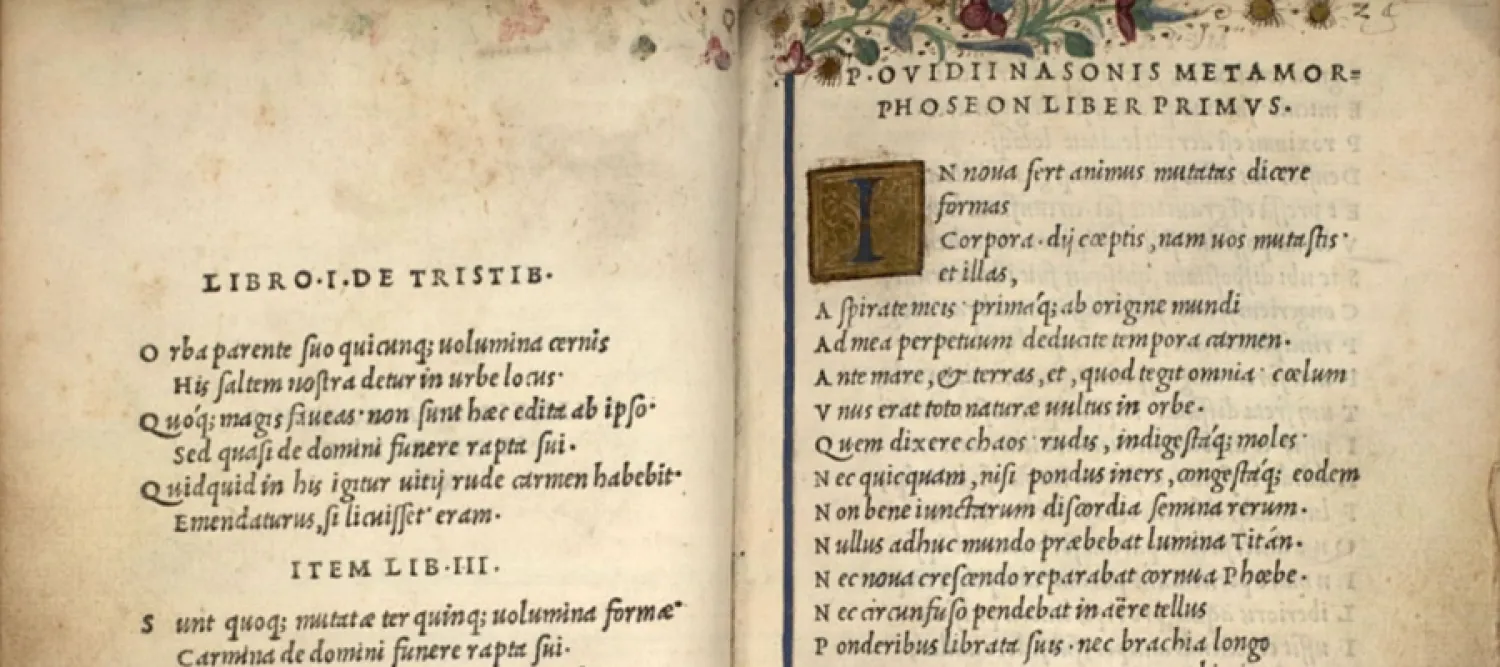 LIBRO·I·DE TRISTIB·
Orba parente ſuo quicunq; uolumina cernis
His ſaltem noſtra detur in urbe locus·
Quóq; magis faueas· non ſunt hæc edita ab ipſo·
Sed quaſi de domini funere rapta ſui·
Quidquid in his igitur uitij rude carmen habebit·
Emendaturus, ſi licuiſſet· eram·
ITEM LIB·III·
Sunt quoq; mutatæ ter quinq; uolumina formæ·
Carmina de domini funere rapta ſui·
P·OVIDII NASONIS METAMOR=
PHOSEON LIBER PRIMVS·
IN noua fert animus mutatas dicere
formas
Corpora· dij cœptis, nam uos mutaſtis·
et illas,
Aſpirate meis· primaq́; ab origine mundi
Ad mea perpetuum deducite tempora carmen·
Ante mare, & terras, et, quod tegit omnia· cœlum
Vnus erat toto naturæ uultus in orbe·
Quem dixere chaos· rudis, indigeſtaq́; moles·
Nec quicquam, niſi pondus iners, congeſtaq́; eodem
Non bene iunctarum diſcordia ſemina rerum·
Nullus adhuc mundo præbebat lumina Titán·
Nec noua creſcendo reparabat cornua Phœbe·
Nec circunfuſo pendebat in aëre tellus
Ponderibus librata ſuis· nec brachia longo